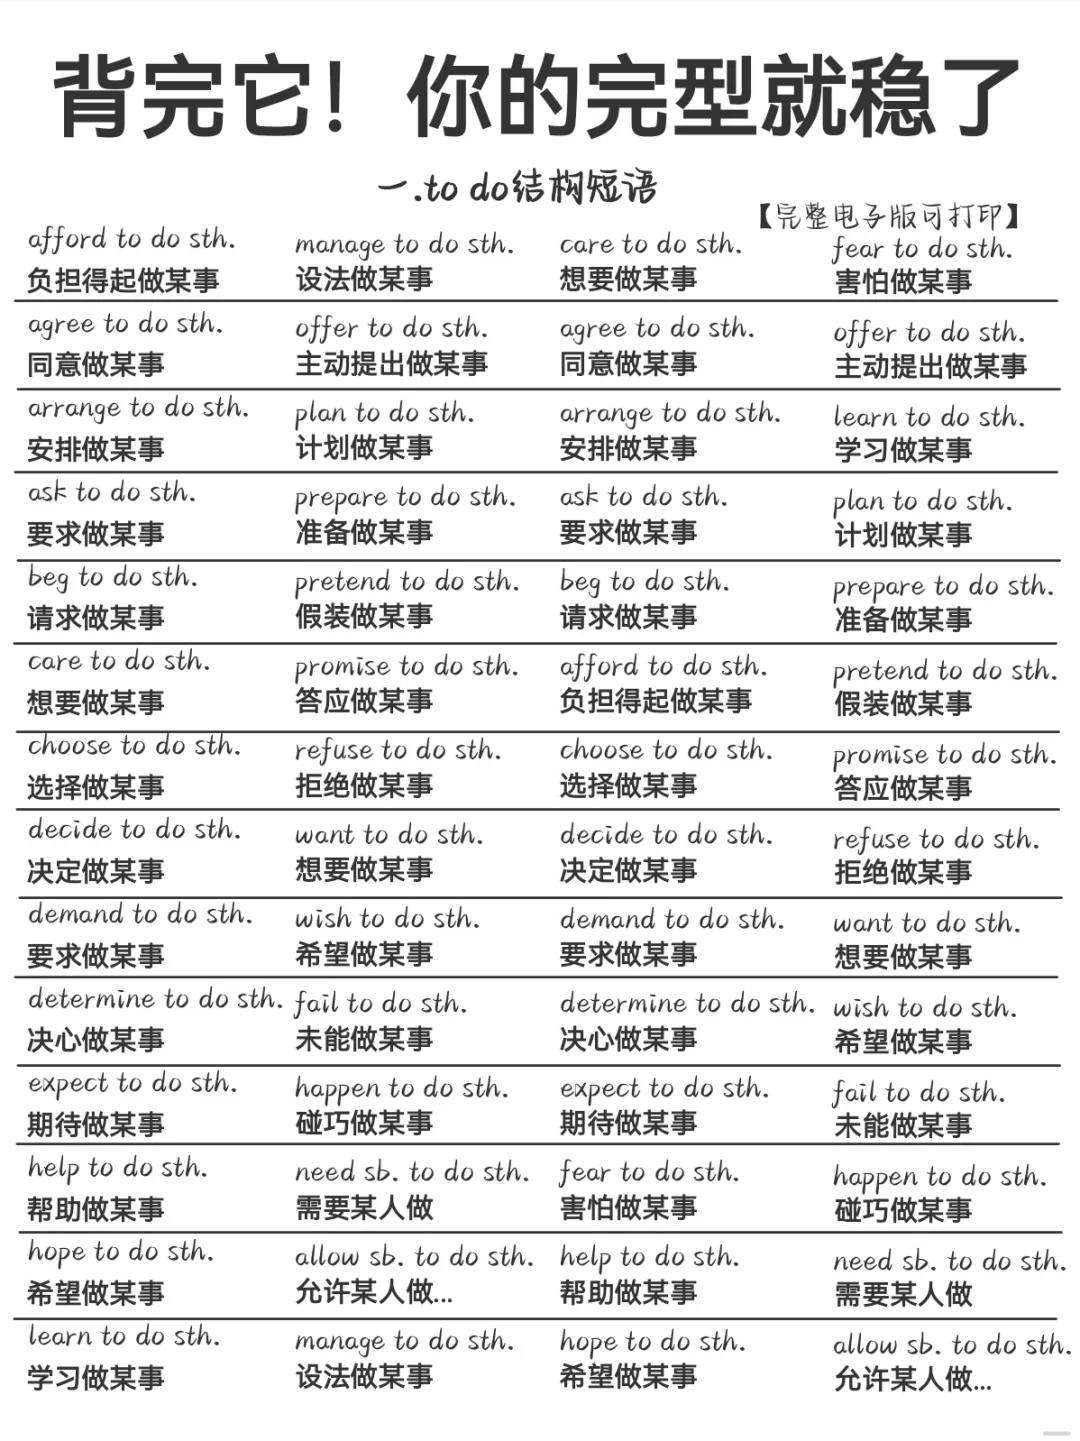 背完它！你的完型就稳了
一.to do结构短语
【完整电子版可打印】
afford to do sth. manage to do sth. care to do sth. fear to do sth.
负担得起做某事 设法做某事 想要做某事 害怕做某事
agree to do sth. offer to do sth. agree to do sth. offer to do sth.
同意做某事 主动提出做某事 同意做某事 主动提出做某事
arrange to do sth. plan to do sth. arrange to do sth. learn to do sth.
安排做某事 计划做某事 安排做某事 学习做某事
ask to do sth. prepare to do sth. ask to do sth. plan to do sth.
要求做某事 准备做某事 要求做某事 计划做某事
beg to do sth. pretend to do sth. beg to do sth. prepare to do sth.
请求做某事 假装做某事 请求做某事 准备做某事
care to do sth. promise to do sth. afford to do sth. pretend to do sth.
想要做某事 答应做某事 负担得起做某事 假装做某事
choose to do sth. refuse to do sth. choose to do sth. promise to do sth.
选择做某事 拒绝做某事 选择做某事 答应做某事
decide to do sth. want to do sth. decide to do sth. refuse to do sth.
决定做某事 想要做某事 决定做某事 拒绝做某事
demand to do sth. wish to do sth. demand to do sth. want to do sth.
要求做某事 希望做某事 要求做某事 想要做某事
determine to do sth. fail to do sth. determine to do sth. wish to do sth.
决心做某事 未能做某事 决心做某事 希望做某事
expect to do sth. happen to do sth. expect to do sth. fail to do sth.
期待做某事 碰巧做某事 期待做某事 未能做某事
help to do sth. need sb. to do sth. fear to do sth. happen to do sth.
帮助做某事 需要某人做 害怕做某事 碰巧做某事
hope to do sth. allow sb. to do sth. help to do sth. need sb. to do sth.
希望做某事 允许某人做... 帮助做某事 需要某人做
learn to do sth. manage to do sth. hope to do sth. allow sb. to do sth.
学习做某事 设法做某事 希望做某事 允许某人做...